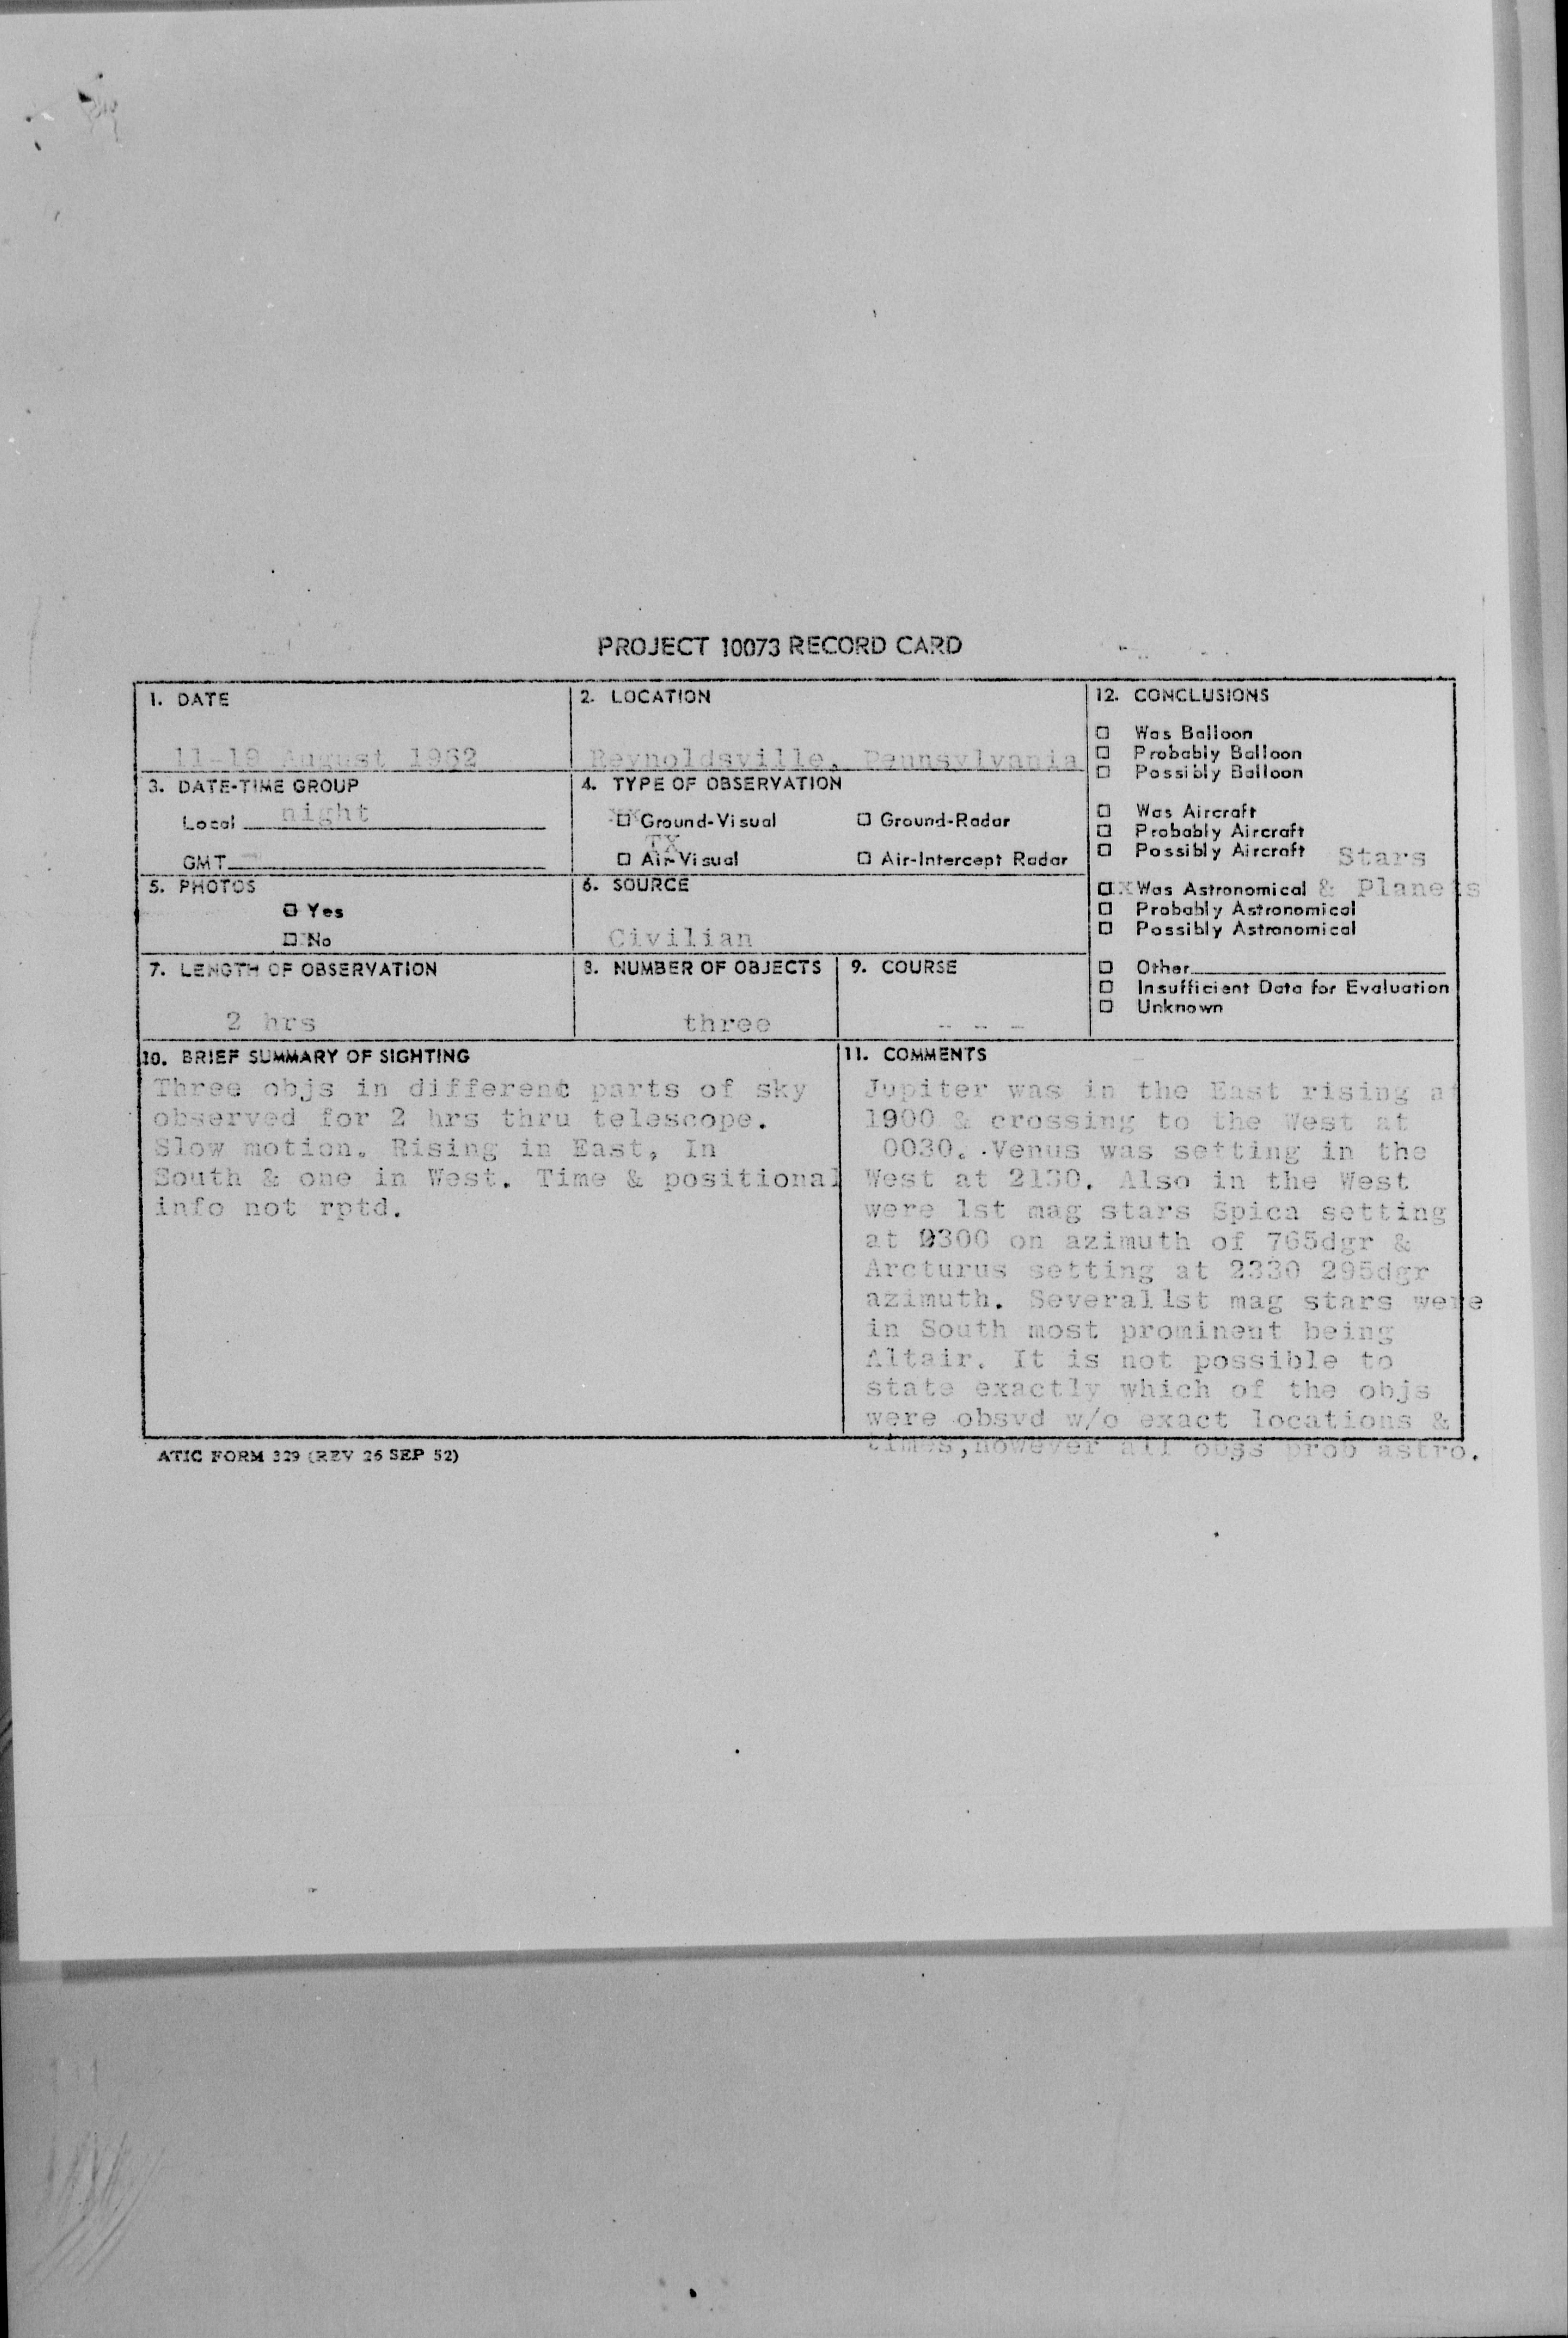 PROJECT 10073 RECORD CARD
1. DATE
11-19 August 1962
2. LOCATION
Reynoldsville, Pennsylvania
3. DATE-TIME GROUP
Local night
GMT
4. TYPE OF OBSERVATION
xx Ground-Visual
Ground-Radar
TX
Air-Visual
Air-Intercept Radar
5. PHOTOS
Yes
No
6. SOURCE
Civilian
7. LENGTH OF OBSERVATION
2 hrs
8. NUMBER OF OBJECTS
three
9. COURSE
- - -
12. CONCLUSIONS
Was Balloon
Probably Balloon
Possibly Balloon
Was Aircraft
Probably Aircraft
Possibly Aircraft Stars
x Was Astronomical & Planets
Probably Astronomical
Possibly Astronomical
Other
Insufficient Data for Evaluation
Unknown
10. BRIEF SUMMARY OF SIGHTING
Three objs in different parts of sky
observed for 2 hrs thru telescope.
Slow motion. Rising in East, In
South & one in West. Time & positional
info not rptd.
11. COMMENTS
Jupiter was in the East rising at
1900 & crossing to the West at
0030. Venus was setting in the
West at 2130. Also in the West
were 1st mag stars Spica setting
at 9300 on azimuth of 765dgr &
Arcturus setting at 2330 295dgr
azimuth. Several 1st mag stars were
in South most prominent being
Altair. It is not possible to
state exactly which of the objs
were obsvd w/o exact locations &
times, however all obgs prob astro.
ATIC FORM 329 (REV 26 SEP 52)